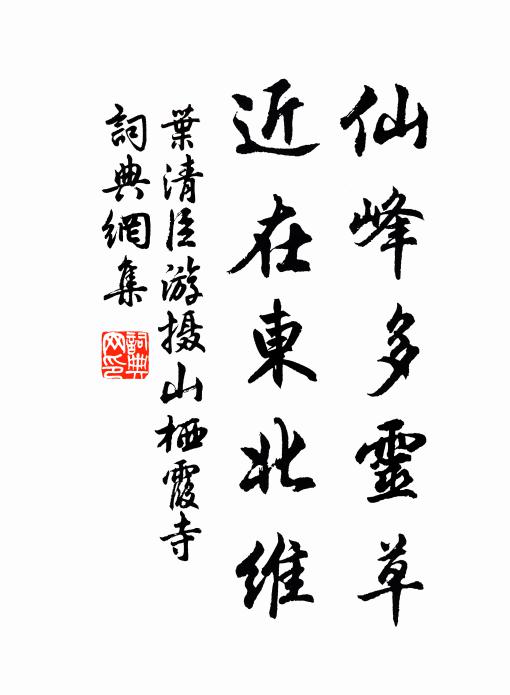 仙峰多靈草
近在東北維
葉清臣游摄山栖霞寺
詞典網集
詞典網印